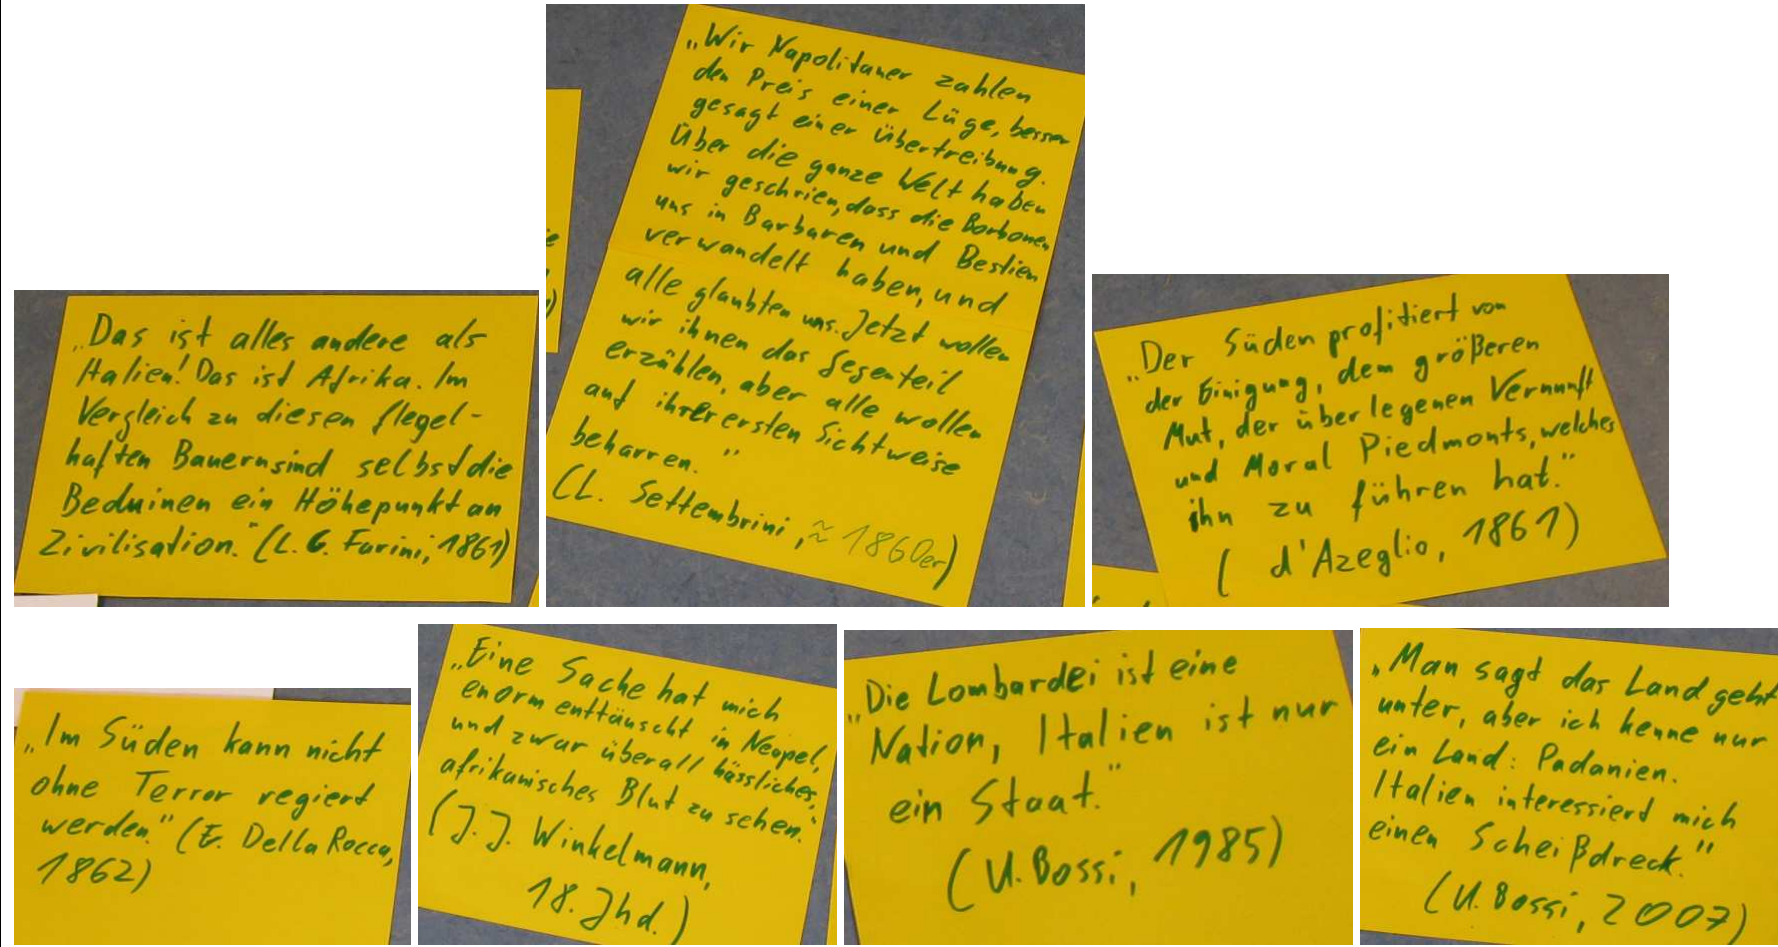 „Das ist alles andere als
Italien! Das ist Afrika. Im
Vergleich zu diesen flegel-
haften Bauern sind selbst die
Beduinen ein Höhepunkt an
Zivilisation." (L. C. Farini, 1861)
„Wir Napolitaner zahlen
den Preis einer Lüge, besser
gesagt einer Übertreibung.
Über die ganze Welt haben
wir geschrien, dass die Borbonen
uns in Barbaren und Bestien
verwandelt haben, und
alle glaubten uns. Jetzt wollen
wir ihnen das Gegenteil
erzählen, aber alle wollen
auf ihrer ersten Sichtweise
beharren."
(L. Settembrini, ≈ 1860er)
„Der Süden profitiert von
der Einigung, dem größeren
Mut, der überlegenen Vernunft
und Moral Piedmonts, welches
ihn zu führen hat."
( d'Azeglio, 1861)
„Im Süden kann nicht
ohne Terror regiert
werden." (E. Della Rocca,
1862)
„Eine Sache hat mich
enorm enttäuscht in Neapel,
und zwar überall hässliches,
afrikanisches Blut zu sehen."
(J. J. Winkelmann,
18. Jhd.)
„Die Lombardei ist eine
Nation, Italien ist nur
ein Staat."
(U. Bossi, 1985)
„Man sagt das Land geht
unter, aber ich kenne nur
ein Land: Padanien.
Italien interessierd mich
einen Scheißdreck."
(U. Bossi, 2007)